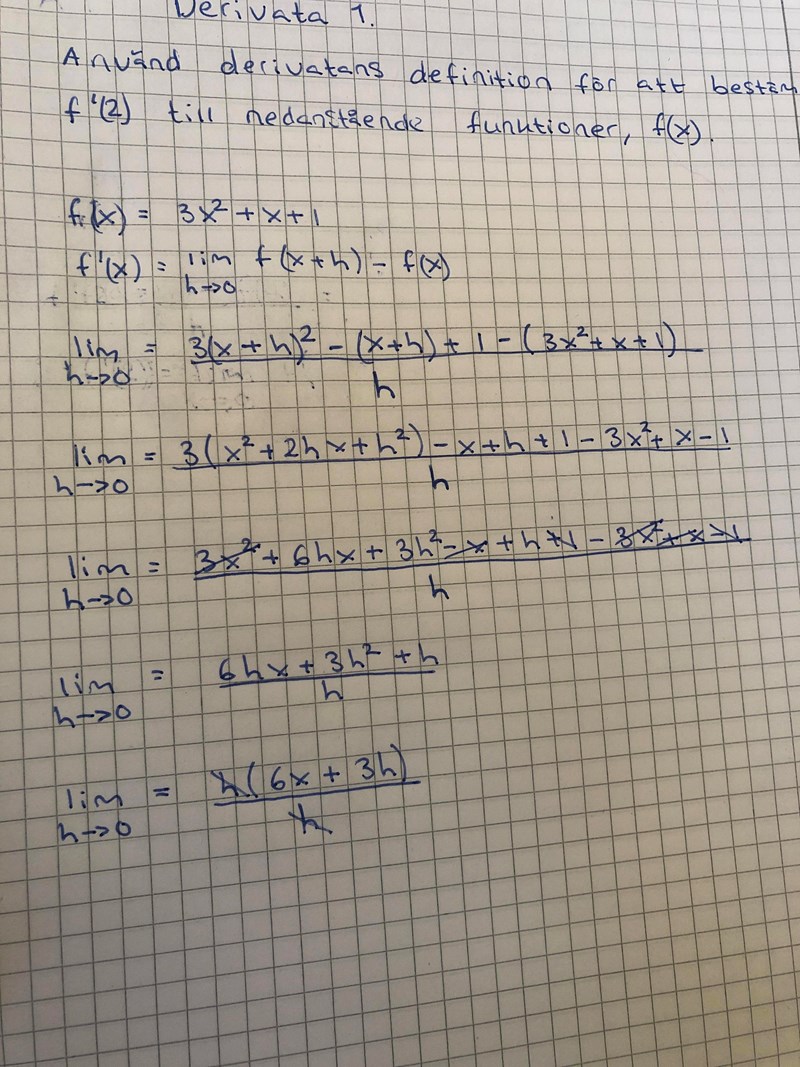 Derivata 1.
Använd derivatans definition för att bestäm
f'(2) till nedanstående funktioner, f(x).
f(x) = 3x² + x + 1
f'(x) = lim f(x+h) - f(x)
h→0
lim = 3(x+h)² - (x+h) + 1 - (3x² + x + 1)
h→0 h
lim = 3(x² + 2hx + h²) - x + h + 1 - 3x² + x - 1
h→0 h
lim = 3x² + 6hx + 3h² - x + h + 1 - 3x² + x - 1
h→0 h
lim = 6hx + 3h² + h
h→0 h
lim = h(6x + 3h)
h→0 h